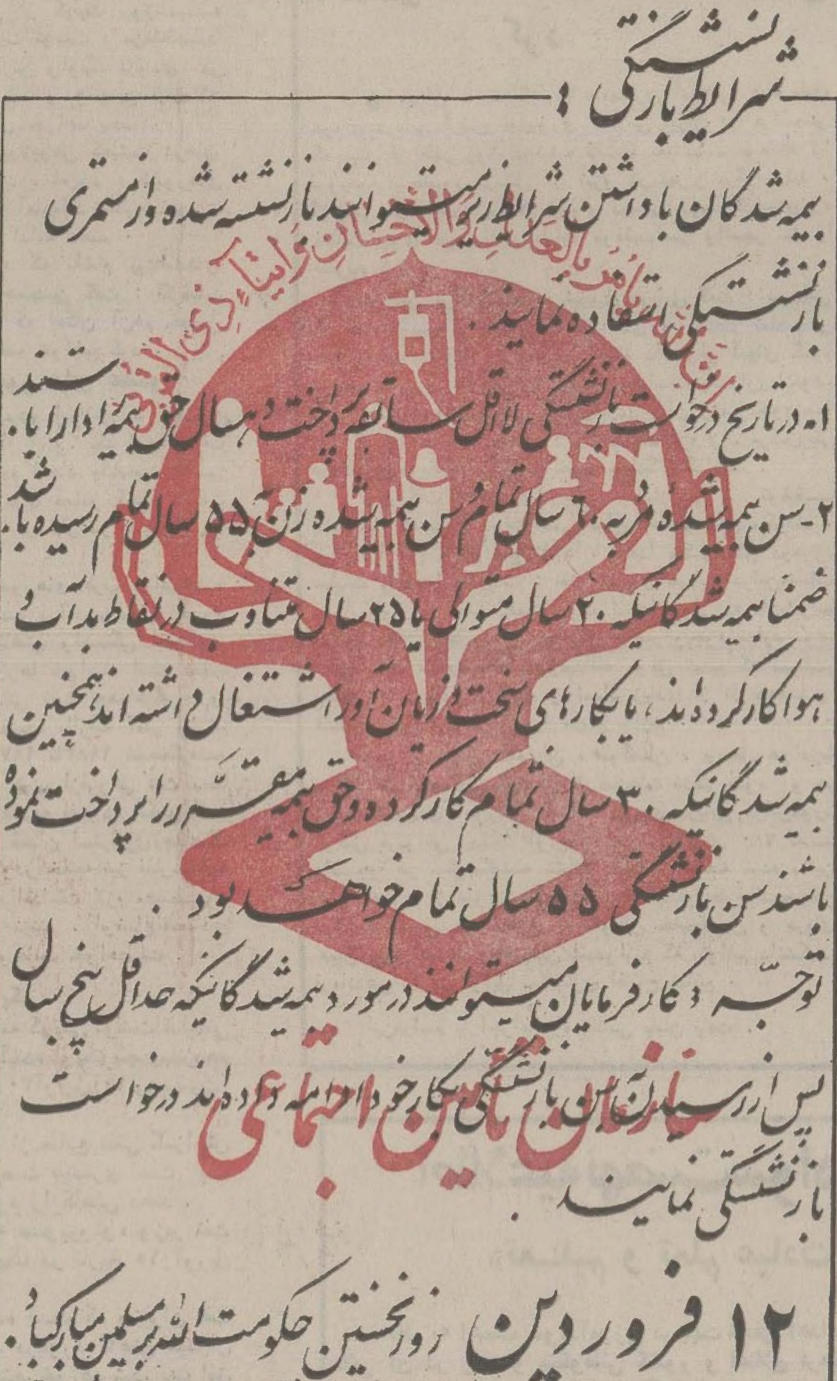 شرایط بازنشستگی :
بیمه شدگان با داشتن شرایط زیر میتوانند بازنشسته شده و از مستمری
بازنشستگی استفاده نمایند .
۱- در تاریخ درخواست بازنشستگی لااقل سابقه پرداخت ده سال حق بیمه را دارا باشند .
۲- سن بیمه شده مرد به ۶۰ سال تمام و سن بیمه شده زن به ۵۵ سال تمام رسیده باشد .
ضمناً بیمه شدگانیکه ۲۰ سال متوالی یا ۲۵ سال متناوب در نقاط بد آب و
هوا کار کرده اند ، یا بکارهای سخت و زیان آور اشتغال داشته اند ، همچنین
بیمه شدگانیکه ۳۰ سال تمام کار کرده و حق بیمه مقرر را پرداخت نموده
باشند سن بازنشستگی ۵۵ سال تمام خواهد بود .
توجه : کارفرمایان میتوانند در مورد بیمه شدگانیکه حداقل پنج سال
پس از رسیدن به سن بازنشستگی بکار خود ادامه داده اند درخواست
بازنشستگی نمایند .
۱۲ فروردین روز نخستین حکومت الله بر مسلمین مبارکباد .
ان الله یأمر بالعدل والاحسان وایتاء ذی القربی
سازمان تأمین اجتماعی